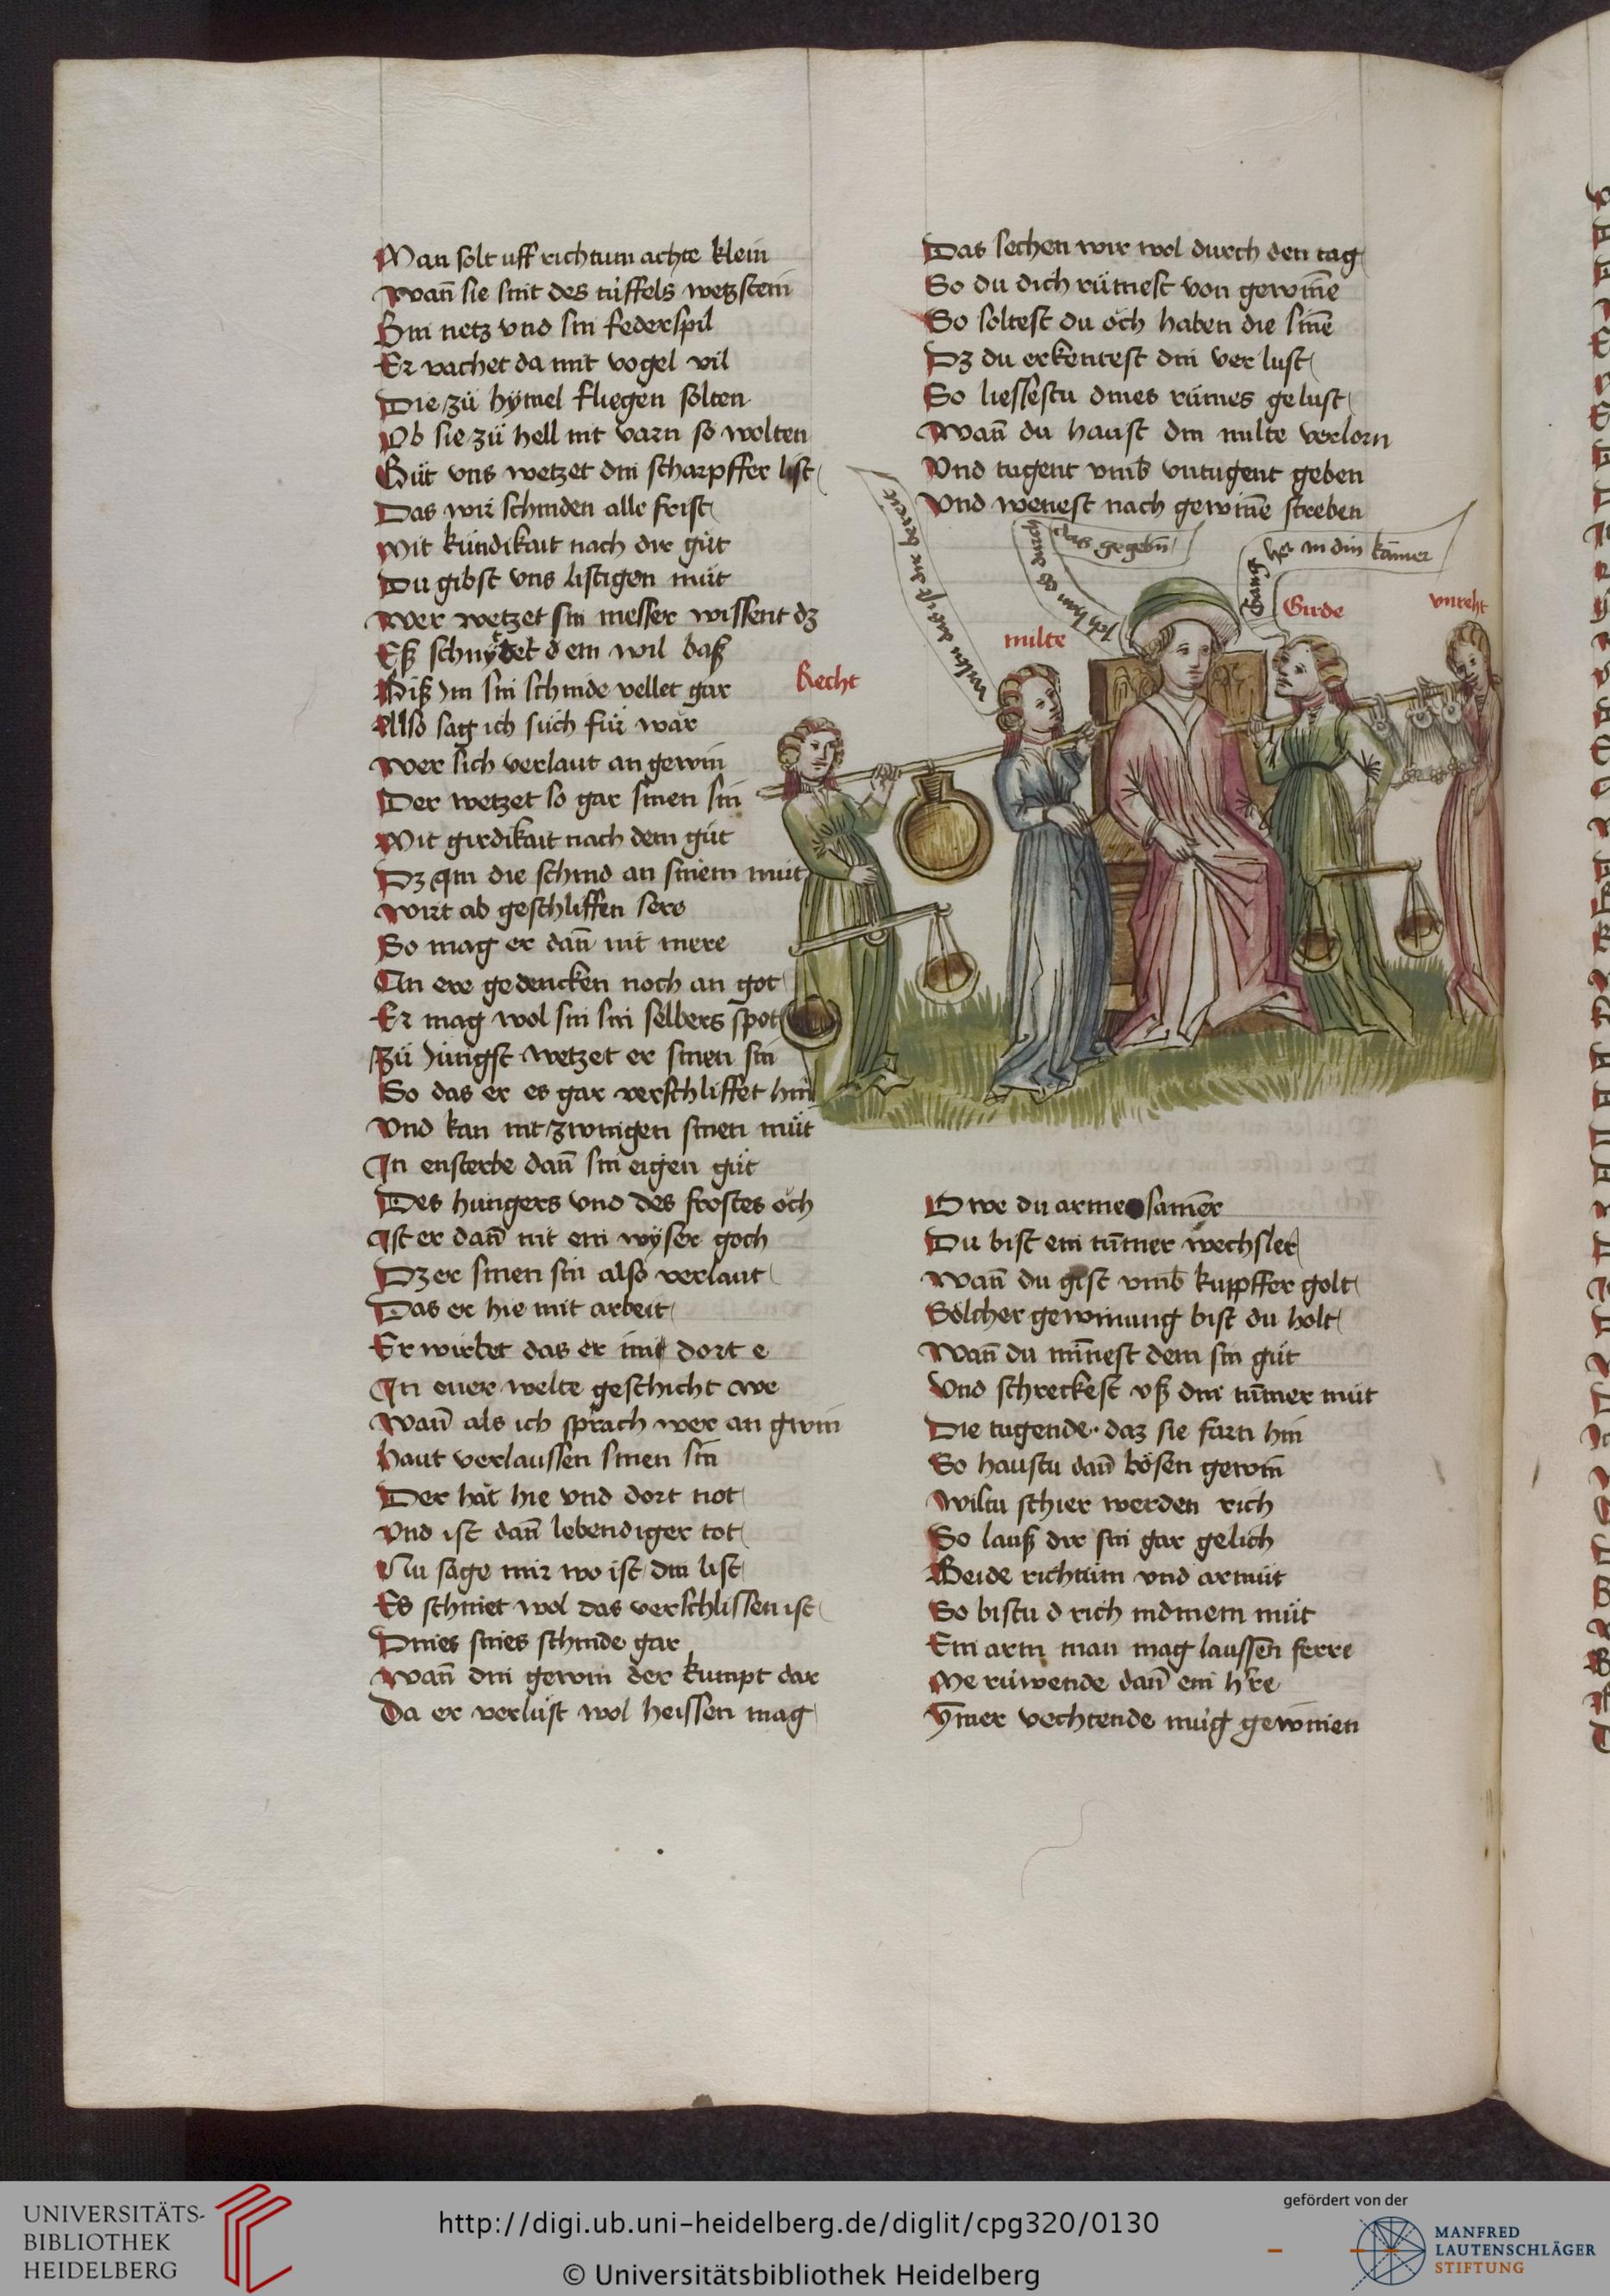 Man solt uff richtum achte klein
Wan̄ sie sint des tüffels wetzstein
Sin netz vnd sin federspil
Er vachet da mit vogel vil
Die zü hymel fliegen solten
Ob sie zü hell nit varn so wolten
Güt vns wetzet din scharpffer list
Das wir schinden alle frist
Mit kündikait nach dir güt
Du gibst vns listigen müt
Wer wetzet sin messer wissent dz
Eß schnydet dem wil baß
Biß im sin schnide vellet gar
Also sag ich üch für war
Wer sich verlaut an gewin
Der wetzet so gar sinen sin
Mit girdikait nach dem güt
Dz Im die schnid an sinem müt
Wirt ab geschliffen sere
So mag er dan̄ nit mere
An ere gedencken noch an got
Er mag wol sin sin selbers spot
Zü Jüngst wetzet er sinen sin
So das er es gar verschliffet hin
Vnd kan nit zwingen sinen müt
In ensterbe dan̄ sin eigen güt
Des hungers vnd des frostes öch
Ist er dan̄ nit ein wyser goch
Dz er sinen sin also verlaut
Das er hie mit arbeit
Er wirbet das er imt dort e
In ener welte geschicht we
Wan̄ als ich sprach wer an gwin
Haut verlaussen sinen sin
Der hät hie vnd dort not
Vnd ist dan̄ lebendiger tot
Nu sage mir wo ist din list
Es schniet wol das verschlissen ist
Dines sines schnide gar
Wan̄ din gewin der kumpt dar
Da er verlust wol heissen mag
Das sechen wir wol durch den tag
So du dich rümest von gewin̄e
So soltest du öch haben die sin̄e
Dz du erkentest din verlust
So liessestu dines rümes gelust
Wan̄ du haust din milte verlorn
Vnd tugent vmb vntugent geben
Vnd wenest nach gewin̄e streben
miltu das ist dir bereit
Ich han es durch
das gegebn̄
Gang
her in din kamer
milte
Girde
vnreht
Recht
O we du arme samer
Du bist ein tum̄er wechsler
Wan̄ du gist vmb kupffer golt
Sölcher gewinnung bist du holt
Wan̄ du min̄est dem sin güt
Vnd schreckest vß din tum̄er müt
Die tugende daz sie farn hin
So haustu dan̄ bösen gewin
Wiltu schier werden rich
So lauß dir sin gar gelich
Beide richtüm vnd armüt
So bistu d rich in dinem müt
Ein arm man mag laussen ferre
Me rüwende dan̄ ein h're
Ym̄er vechtende müg gewinen
UNIVERSITÄTS-
BIBLIOTHEK
HEIDELBERG
http://digi.ub.uni-heidelberg.de/diglit/cpg320/0130
© Universitätsbibliothek Heidelberg
gefördert von der
MANFRED
LAUTENSCHLÄGER
STIFTUNG